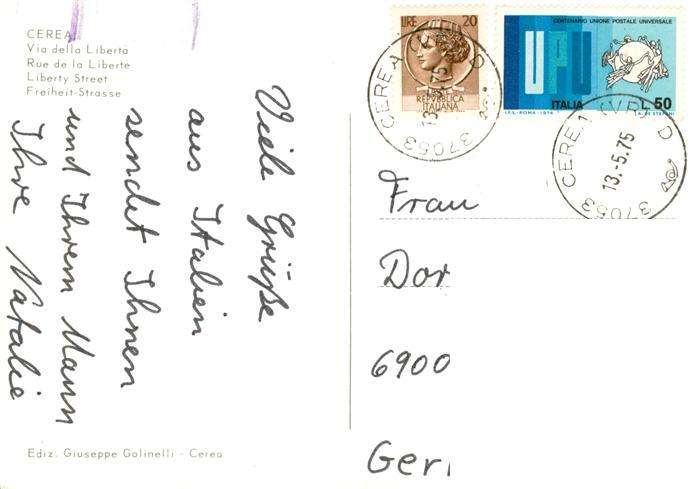 CEREA
Via della Liberta
Rue de la Liberte
Liberty Street
Freiheit-Strasse
Viele Grüße
aus Italien
sendet Ihnen
und Ihrem Mann
Ihre Natalie
Ediz. Giuseppe Golinelli - Cerea
LIRE 20
REPVBBLICA
ITALIANA
CENTENARIO UNIONE POSTALE UNIVERSALE
UPU
ITALIA L.50
I.P.S.-ROMA-1974 A. DE STEFANI
37053 CEREA
13.-5.75
37053 CEREA (VR) D
13.-5.75
Frau
Dor
6900
Ger